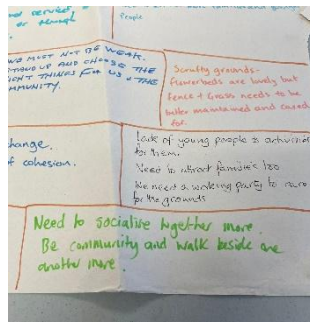 or through
People
WE MUST NOT BE WEAK.
STAND UP AND CHOOSE THE
RIGHT THINGS FOR US & THE
COMMUNITY.
Scruffy grounds -
flowerbeds are lovely but
fence + Grass needs to be
better maintained and cared
for.
change.
of cohesion.
Lack of young people & activities
for them.
Need to attract families too
We need a working party to
for the grounds
Need to socialise together more.
Be community and walk beside one
another more.